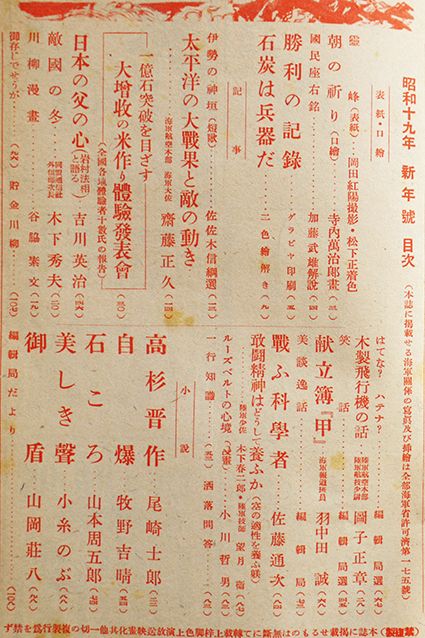 昭和十九年 新年號 目次
(本誌に掲載せる海軍關係の寫眞及び挿繪は全部海軍省許可濟第一七五號)
表紙・口繪
靈峰(表紙)…岡田紅陽撮影・松下正着色
朝の祈り(口繪)…寺内萬治郎畫(三)
國民座右銘…加藤武雄解説(四)
勝利の記錄 グラビヤ印刷(五)
石炭は兵器だ 二色繪解き(九)
記事
伊勢の神垣(短歌)…佐佐木信綱選(一三)
太平洋の大戰果と敵の動き 海軍航空本部 海軍大佐 齋藤正久(一四)
一億石突破を目ざす
大增收の米作り體驗發表會(三〇)
(全國各地體驗者十數氏の報告)
日本の父の心(岩村法相と語る)吉川英治(四六)
敵國の冬 同盟通信社外信部次長 木下秀夫(六〇)
川柳漫畫…(六六) 谷脇素文
御存じでせうが… 貯金川柳…(一二七)
はてな? ハテナ?…編輯局選(七)
木製飛行機の話 陸軍航空本部 陸軍航技少尉 圖子正章
笑話…編輯局選
献立簿『甲』 海軍報道班員 羽中田誠
美談逸話…編輯局
戰ふ科學者 佐藤通次
敢闘精神はどうして養ふか(空の適性を養ふ躾)
陸軍少佐 木下春二郎・陸軍技師 望月衛
ルーズベルトの心境(漫畫)…小川哲男
一行知識…(五) 洒落問答
小説
高杉晋作 尾崎士郎
自爆 牧野吉晴
石ころ 山本周五郎
美しき聲 小糸のぶ
御盾 山岡莊八
編輯局だより
本誌に掲載せるものは無斷にて轉載上梓脚色上演放送映畫化其他一切の複製行爲を禁ず